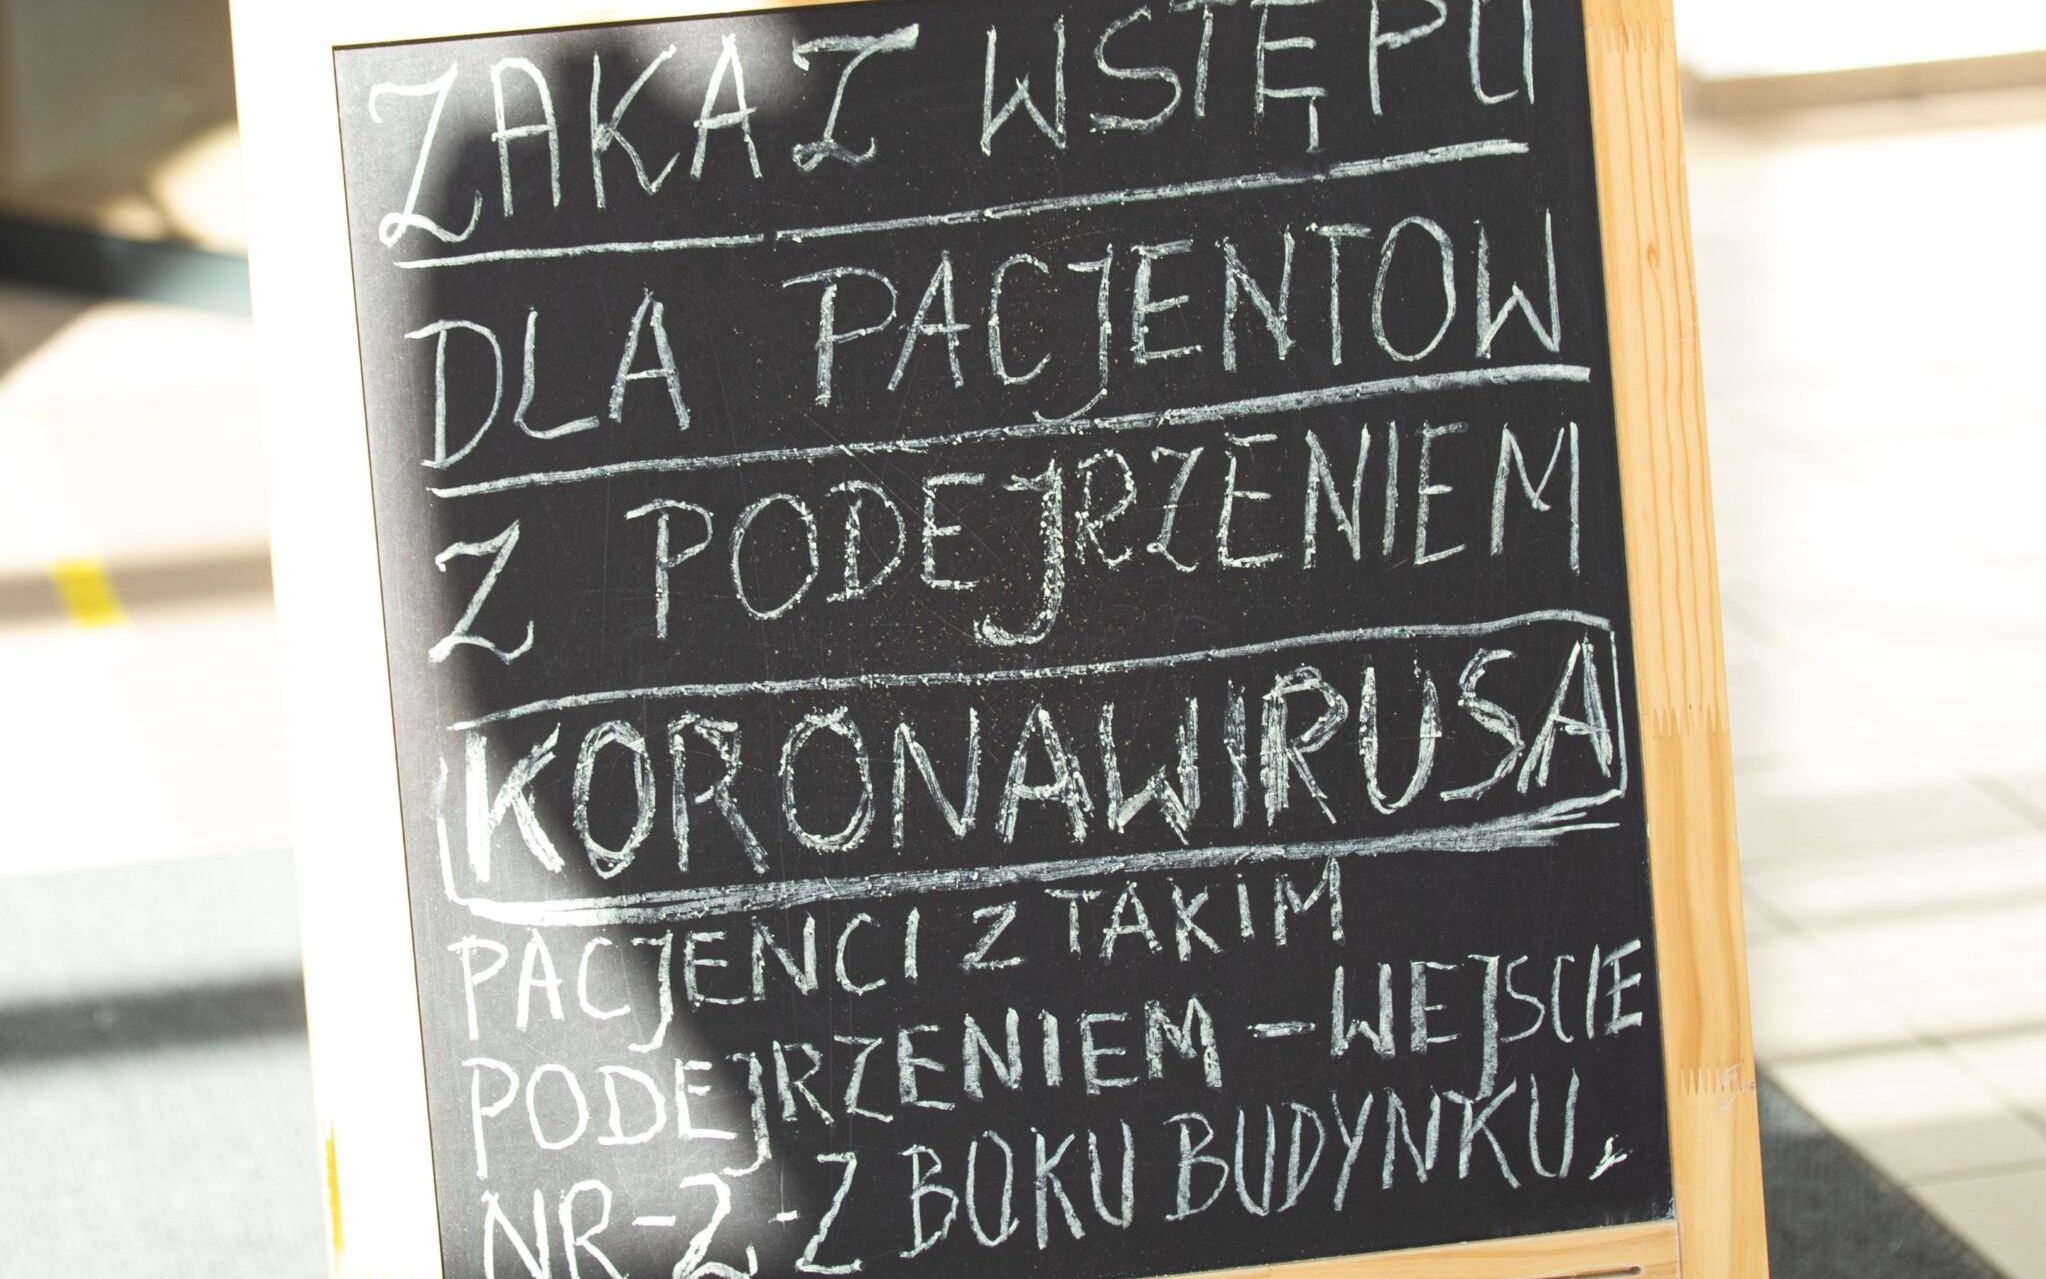 ZAKAZ WSTĘPU
DLA PACJENTOW
Z PODEJRZENIEM
KORONAWIRUSA
PACJENCI Z TAKIM
PODEJRZENIEM – WEJSCIE
NR-2-Z BOKU BUDYNKU.